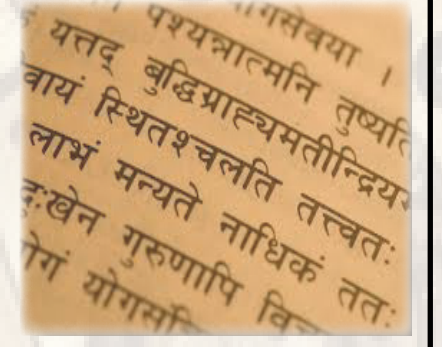 योगसेवया ।
पश्यन्नात्मनि तुष्यति
यत्तद् बुद्धिग्राह्यमतीन्द्रिय
वायं स्थितश्चलति तत्त्वतः
लाभं मन्यते नाधिकं ततः
दुःखेन गुरुणापि वि
योगं